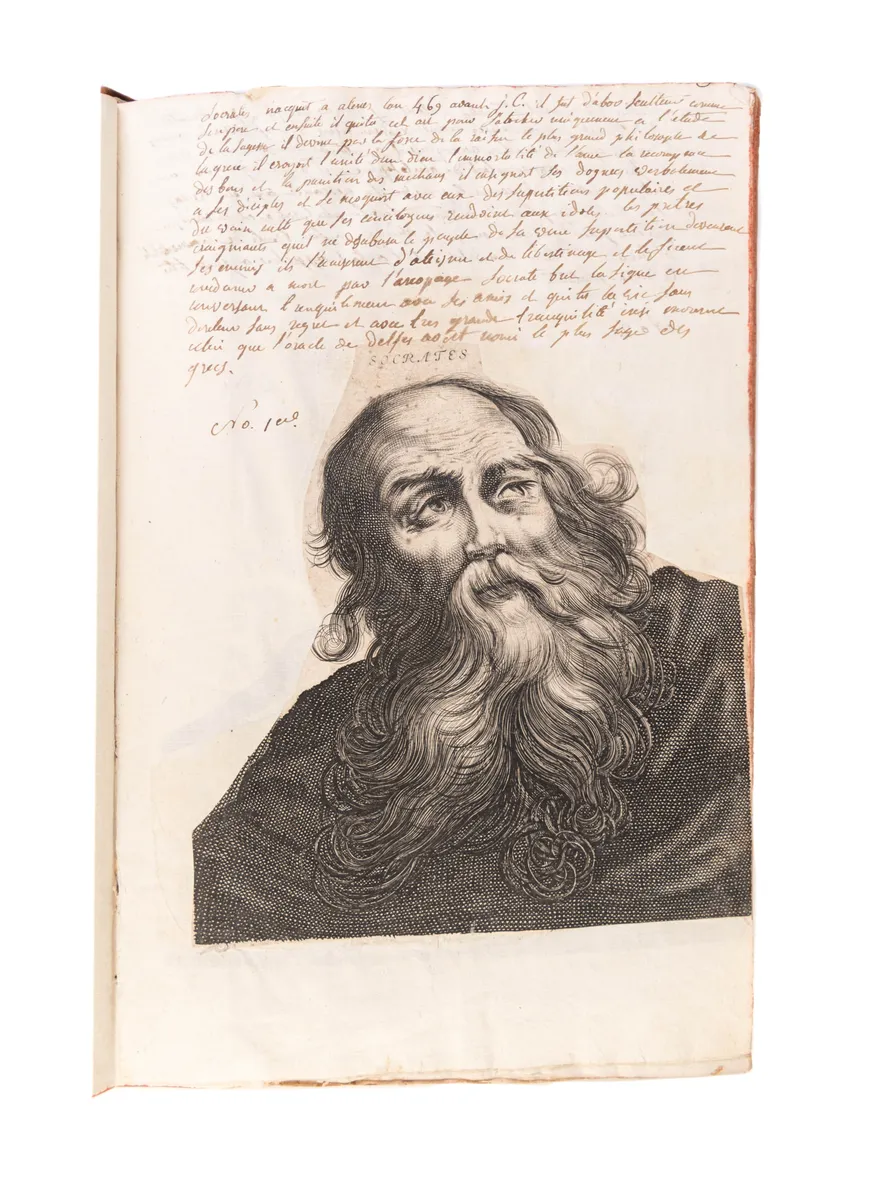 Socrates nacquit a atenes lan 469 avant J.C. il fut dabor sculteur comme
son pere et ensuite il quita cet art pour satacher uniquement a l'étude
de la sagesse il devint par la force de la raison le plus grand philosophe de
la grece il croyoit l'unité d'un dieu l'immortalité de l'ame la recompence
des bons et la punition des mechans il ensegnoit ses dogmes verbalement
a ses diciples et se moquoit avec eux des supertitions populaires et
du vain culte que ses concitoyens rendoint aux idoles les pretres
craignants quil ne desabusa le peuple de sa vaine supertition devinrent
ses enemis ils l'accuserent d'ateisme et de libertinage et le firent
condamner a mort par l'areopage Socrate but la sigue en
conversant tranquilement avec ses amis et quita la vie sans
douleur sans regret et avec tres grande tranquilité insi mourut
celui que l'oracle de delfes avoit nomé le plus sage des
grecs.
SOCRATES
No. 1er